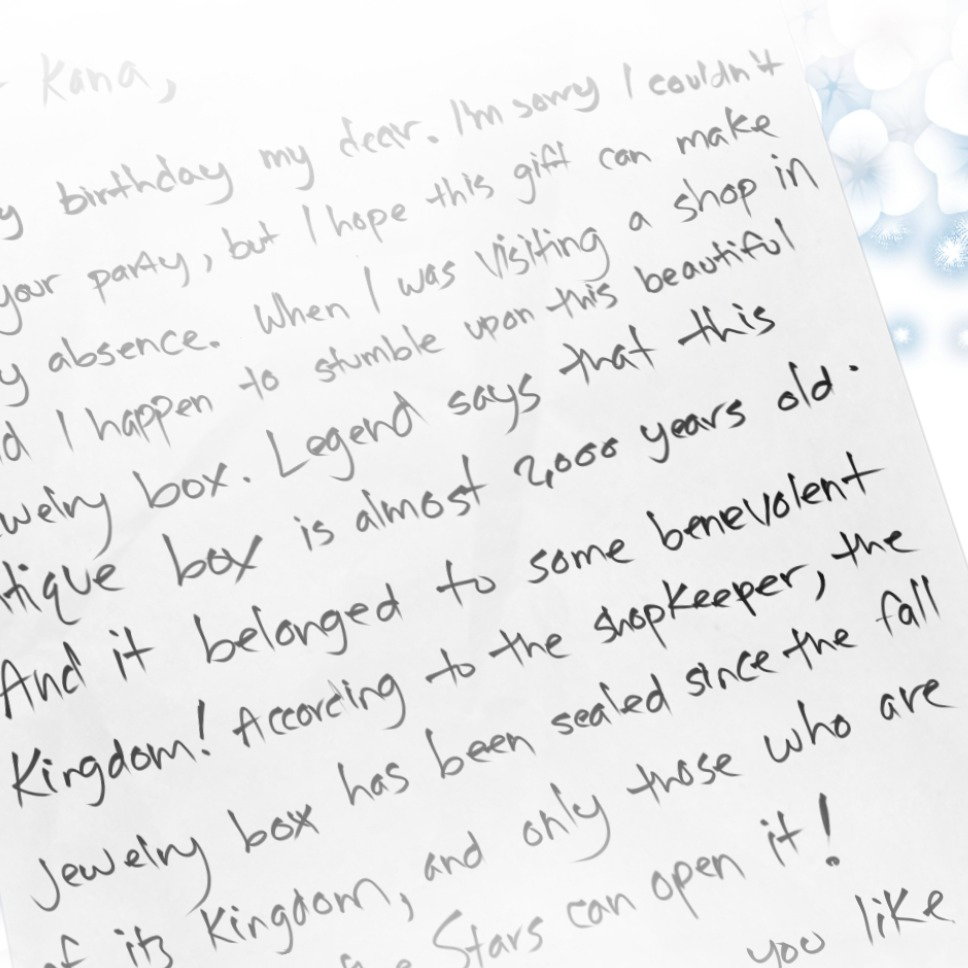 Kana,
birthday my dear. I'm sorry I couldn't
your party, but I hope this gift can make
absence. When I was visiting a shop in
I happen to stumble upon this beautiful
box. Legend says that this
box is almost 2,000 years old.
And it belonged to some benevolent
Kingdom! According to the shopkeeper, the
jewelry box has been sealed since the fall
of its Kingdom, and only those who are
Stars can open it!
you like